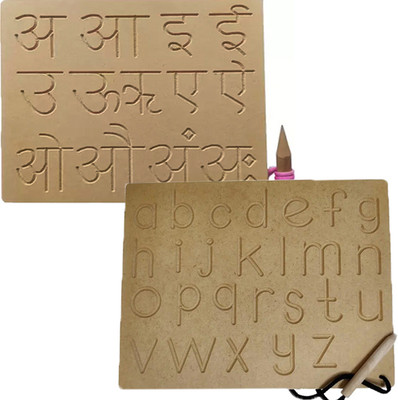 अ आ इ ई
उ ऊ ऋ ए ऐ
ओ औ अं अः
a b c d e f g
h i j k l m n
o p q r s t u
v w x y z